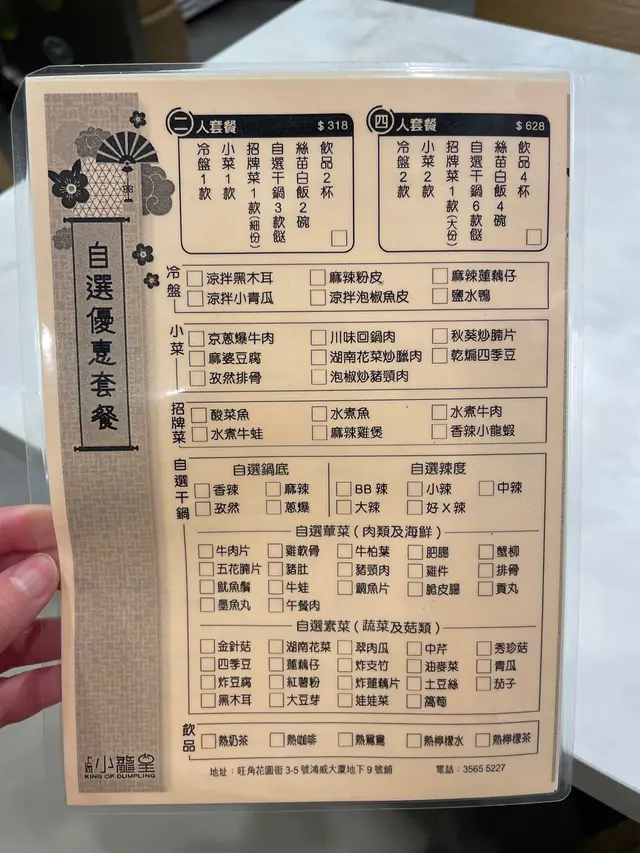 自選優惠套餐
二人套餐 $318
冷盤1款
小菜1款
招牌菜1款(細份)
自選干鍋3款餸
絲苗白飯2碗
飲品2杯
四人套餐 $628
冷盤2款
小菜2款
招牌菜1款(大份)
自選干鍋6款餸
絲苗白飯4碗
飲品4杯
冷盤
涼拌黑木耳 麻辣粉皮 麻辣蓮藕仔
涼拌小青瓜 涼拌泡椒魚皮 鹽水鴨
小菜
京蔥爆牛肉 川味回鍋肉 秋葵炒腩片
麻婆豆腐 湖南花菜炒臘肉 乾煸四季豆
孜然排骨 泡椒炒豬頸肉
招牌菜
酸菜魚 水煮魚 水煮牛肉
水煮牛蛙 麻辣雞煲 香辣小龍蝦
自選干鍋
自選鍋底 自選辣度
香辣 麻辣 BB辣 小辣 中辣
孜然 蔥爆 大辣 好X辣
自選葷菜(肉類及海鮮)
牛肉片 雞軟骨 牛柏葉 肥腸 蟹柳
五花腩片 豬肚 豬頸肉 雞件 排骨
魷魚鬚 牛蛙 鯛魚片 脆皮腸 貢丸
墨魚丸 午餐肉
自選素菜(蔬菜及菇類)
金針菇 湖南花菜 翠肉瓜 中芹 秀珍菇
四季豆 蓮藕仔 炸支竹 油麥菜 青瓜
炸豆腐 紅薯粉 炸蓮藕片 土豆絲 茄子
黑木耳 大豆芽 娃娃菜 萵筍
飲品
熱奶茶 熱咖啡 熱鴛鴦 熱檸檬水 熱檸檬茶
小龍皇
KING OF DUMPLING
地址：旺角花園街3-5號鴻威大廈地下9號舖 電話：3565 5227